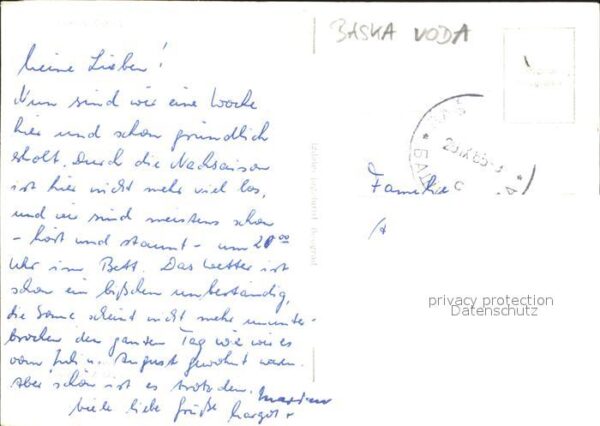 BASKA VODA
Meine Lieben!
Nun sind wir eine Woche
hier und schon gründlich
erholt. Durch die Nachsaison
ist hier nicht mehr viel los,
und wir sind meistens schon
- hört und staunt - um 20⁰⁰
Uhr im Bett. Das Wetter ist
schon ein bißchen unbeständig,
die Sonne scheint nicht mehr ununter-
brochen den ganzen Tag wie wir es
vom Juli u. August gewohnt waren.
Aber schön ist es trotzdem.
Viele liebe Grüße Margot +
Familie
privacy protection
Datenschutz